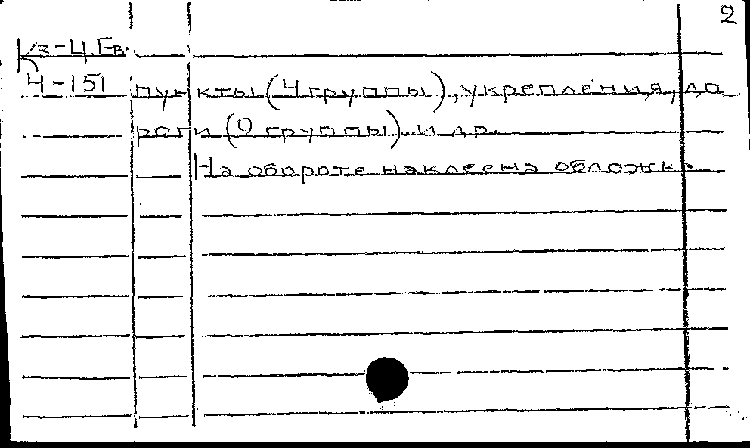 2
К3-4 Гв.
4-151 пункты (4 группы), укрепления, до
роги (0 группы) и др.
На обороте наклеена обложка